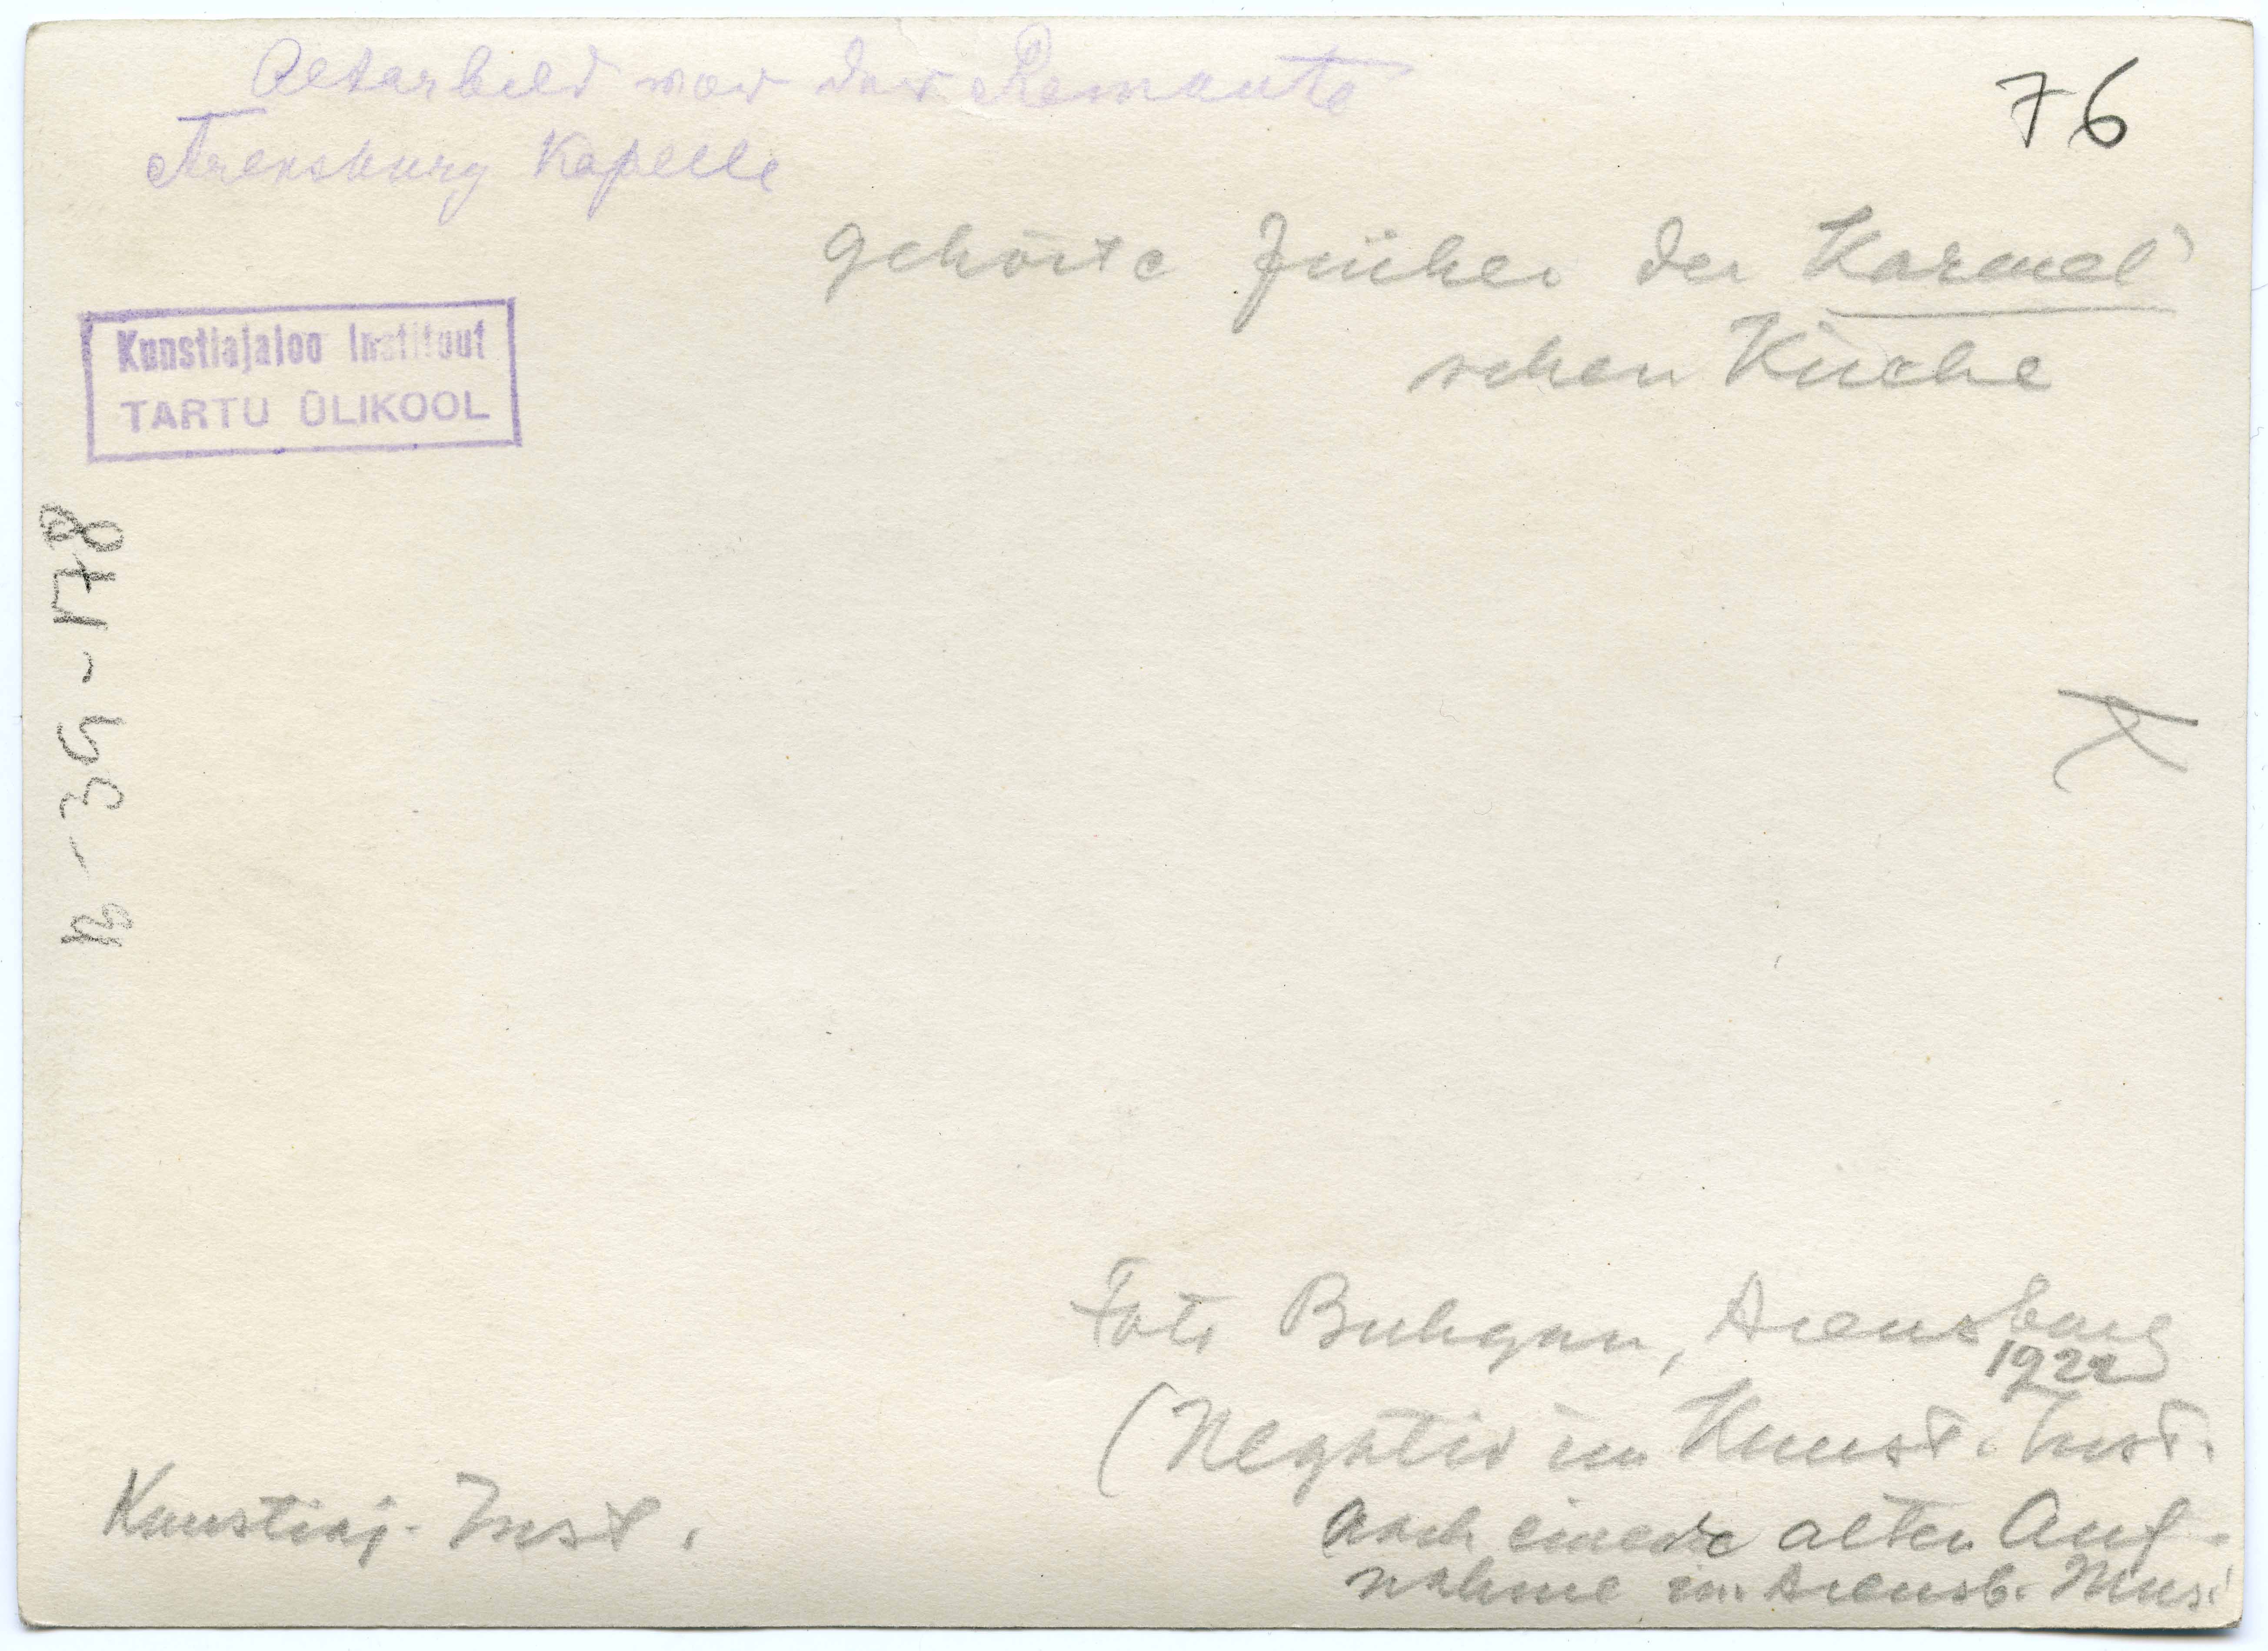 Altarbild vor der Remonte
Arensburg Kapelle
76
gehörte früher der Karmel'
schen Kirche
Kunstiajaloo Instituut
TARTU ÜLIKOOL
B-35-178
Foto Buhgan, Arensburg
1922
(Negativ im Kunst. Inst.
nach einer alten Auf-
nahme im Arensb. Mus.
Kunstiaj. Inst.